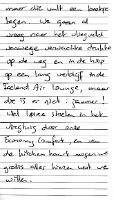 maar die valt een beetje
tegen. We gaan al
vroeg naar het vliegveld
vanwege verwachte drukte
op de weg en in de hoop
op een lang verblijf in de
Iceland Air lounge, maar
die is er niet: jammer!
Wel fijne stoelen in het
vliegtuig door onze
Economy Comfort, en van
de kitchen kaart mogen we
gratis alles kiezen wat we
willen.